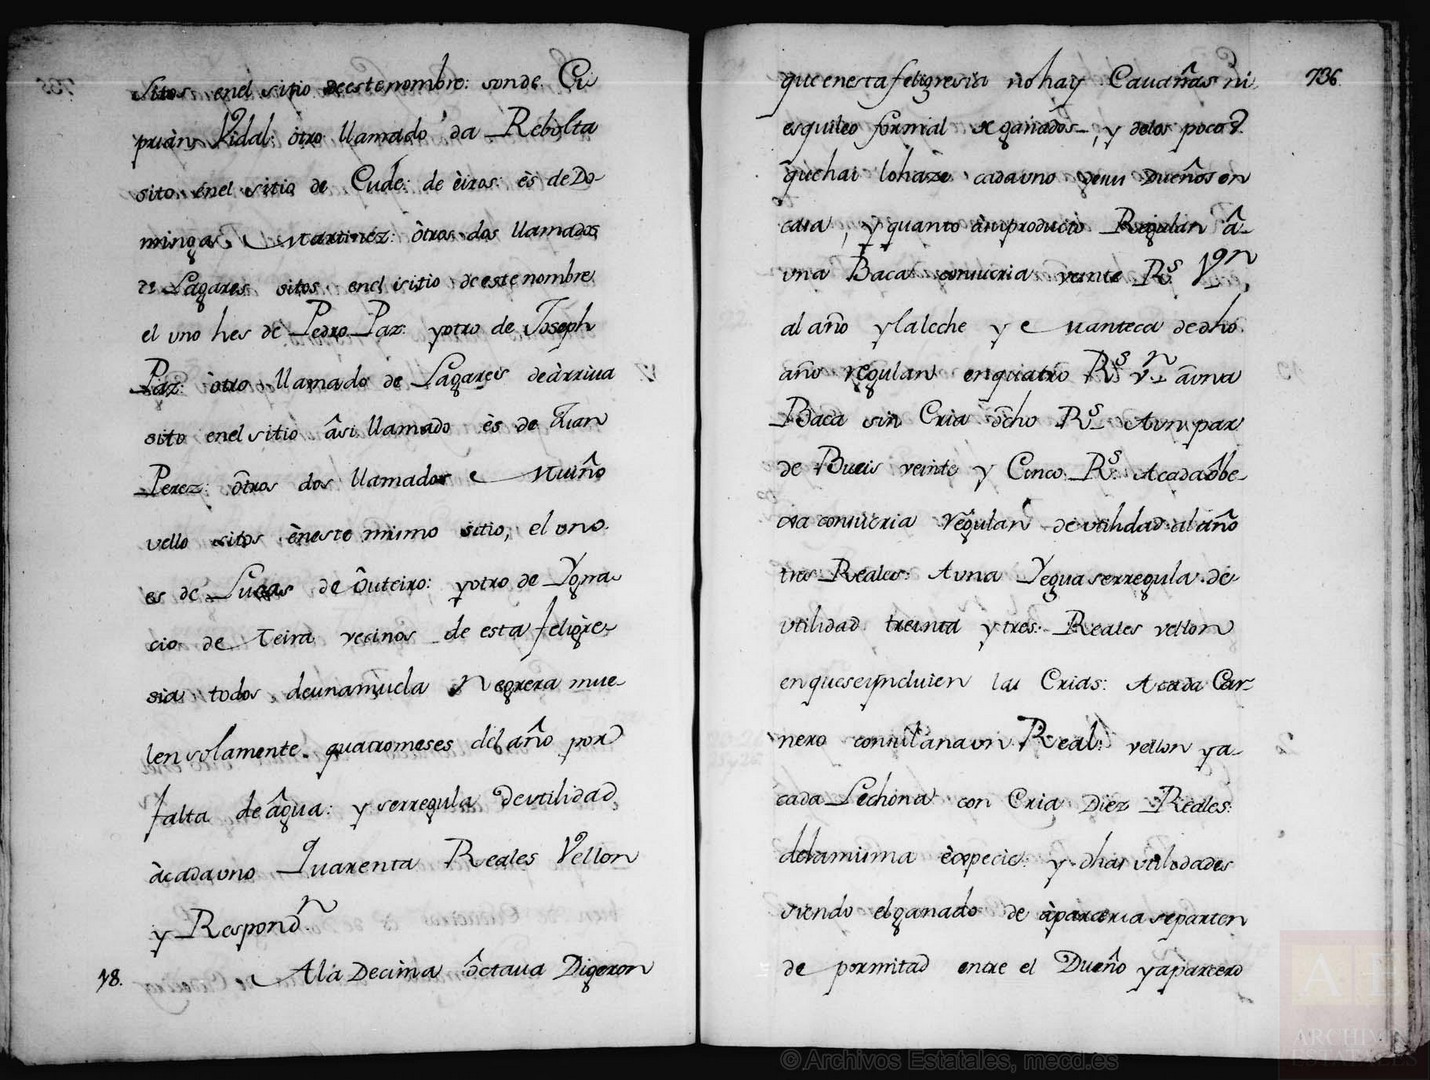 sitos enel sitio deeste nombre: sonde Ci
prian Vidal: òtro llamado da Rebolta
sito ènel sitio de Cude: de èiros: ès de Do
minga Martinez: òtros dos llamados
Lagares sitos enel sitio de este nombre
el uno hes de Pedro Paz: yotro de Joseph
Paz: òtro llamado de Lagares deàrriua
sito enel sitio âsi llamado ès de Juan
Perez: òtros dos llamados Muiño
vello sitos èneste mismo sitio, el uno
es de Lucas de Outeiro: yotro de Ygna
cio de Teira vecinos de esta feligre
sia todos deunamuela Negrera mue
len solamente quatromeses del año por
falta de âgua: y serregula deutilidad
àcadauno Quarenta Reales Vellon
y Respondn
18. Ala Decima òctaua Digeron
736
queenesta feligresia no hay Cauañas ni
esquileo formal de ganados, y delos pocos
quehai lohaze cadauno desus Dueños en
casa, y quanto àsuproducto Regulan â
una Baca consucria veinte Rs Von
al año y laleche y manteca dedho
año regulan enquatro Rs vn àuna
Baca sin Cria òcho Rs Aun par
de Bueis veinte y Cinco Rs Acadaôbe
xa consucria regulan deutilidad al año
tres Reales: Auna Yegua serregula de
utilidad treinta ytres Reales vellon
enqueseyncluien las Crias: Acada Car
nero consideran un Real vellon ya
cada Lechona con Cria Diez Reales:
delamisma èspecie: y dhas utilidades
siendo elganado de àparceria separten
de pormitad entre el Dueño yàparcero
© Archivos Estatales, mecd.es
ARCHIVOS
ESTATALES